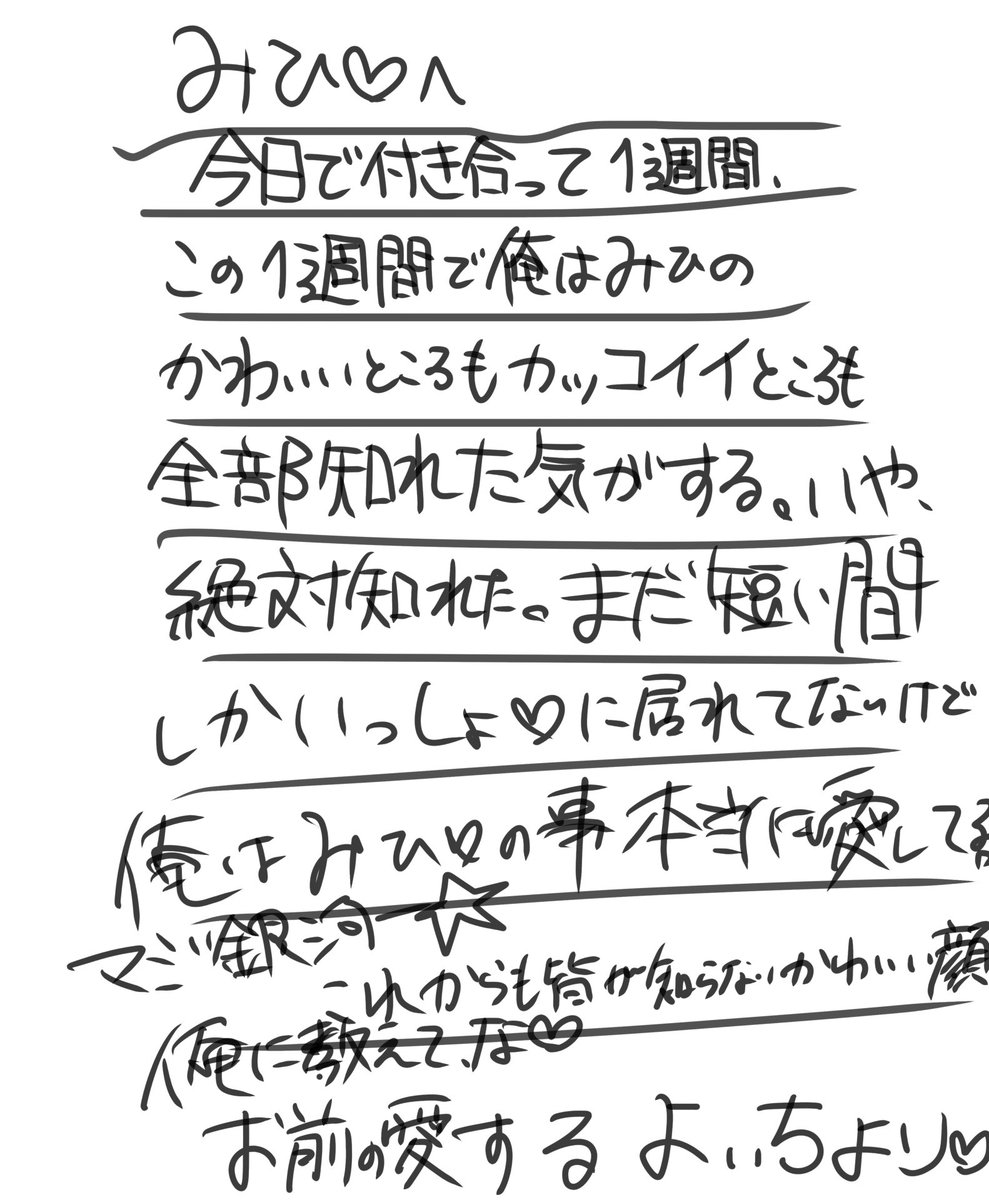 みひ♡へ
今日で付き合って1週間、
この1週間で俺はみひの
かわいいところもカッコイイところも
全部知れた気がする。いや、
絶対知れた。まだ短い間
しかいっしょ♡に居れてないけど
俺はみひ♡の事本当に愛してる
マジ銀河一☆
これからも皆が知らないかわいい顔
俺に教えて、な♡
お前の愛するよいちより♡